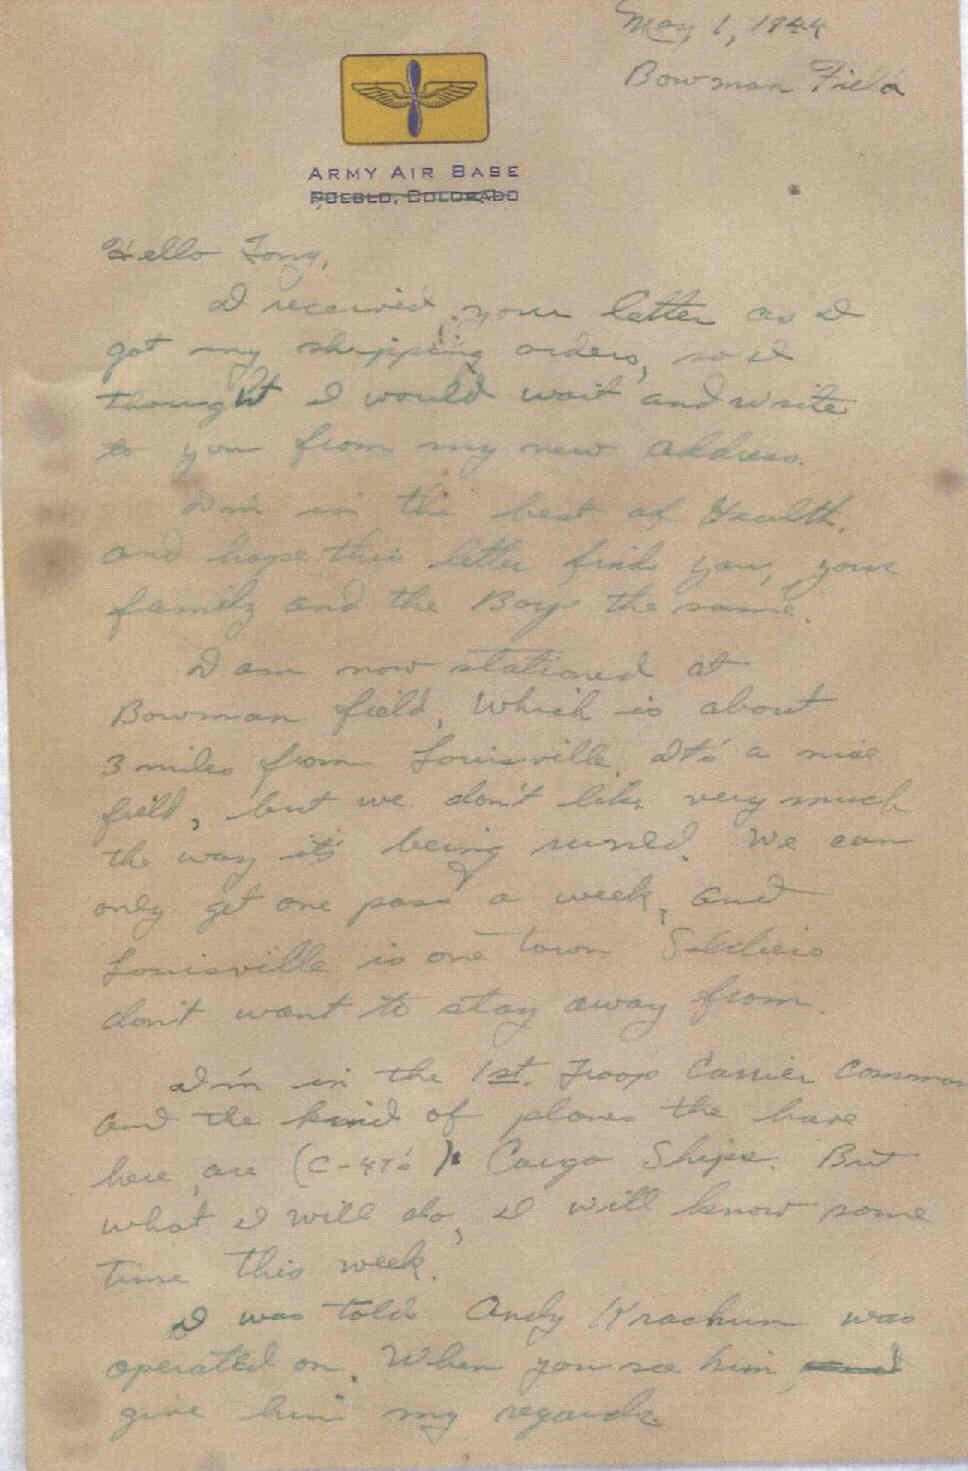 May 1, 1944
Bowman Field
ARMY AIR BASE
PUEBLO, COLORADO
Hello Tony,
I received your letter as I
got my shipping orders, so I
thought I would wait and write
to you from my new address.
I'm in the best of Health,
and hope this letter finds you, your
family and the Boys the same.
I am now stationed at
Bowman field, Which is about
3 miles from Louisville. It's a nice
field, but we don't like very much
the way it's being runed. We can
only get one pass a week, and
Louisville is one town Soldiers
don't want to stay away from.
I'm in the 1st. Troop Carrier Comman
and the kind of planes the have
here are (C-47's) Cargo Ships. But
what I will do, I will know some
time this week.
I was told Andy Krachun was
operated on. When you see him and
give him my regards.